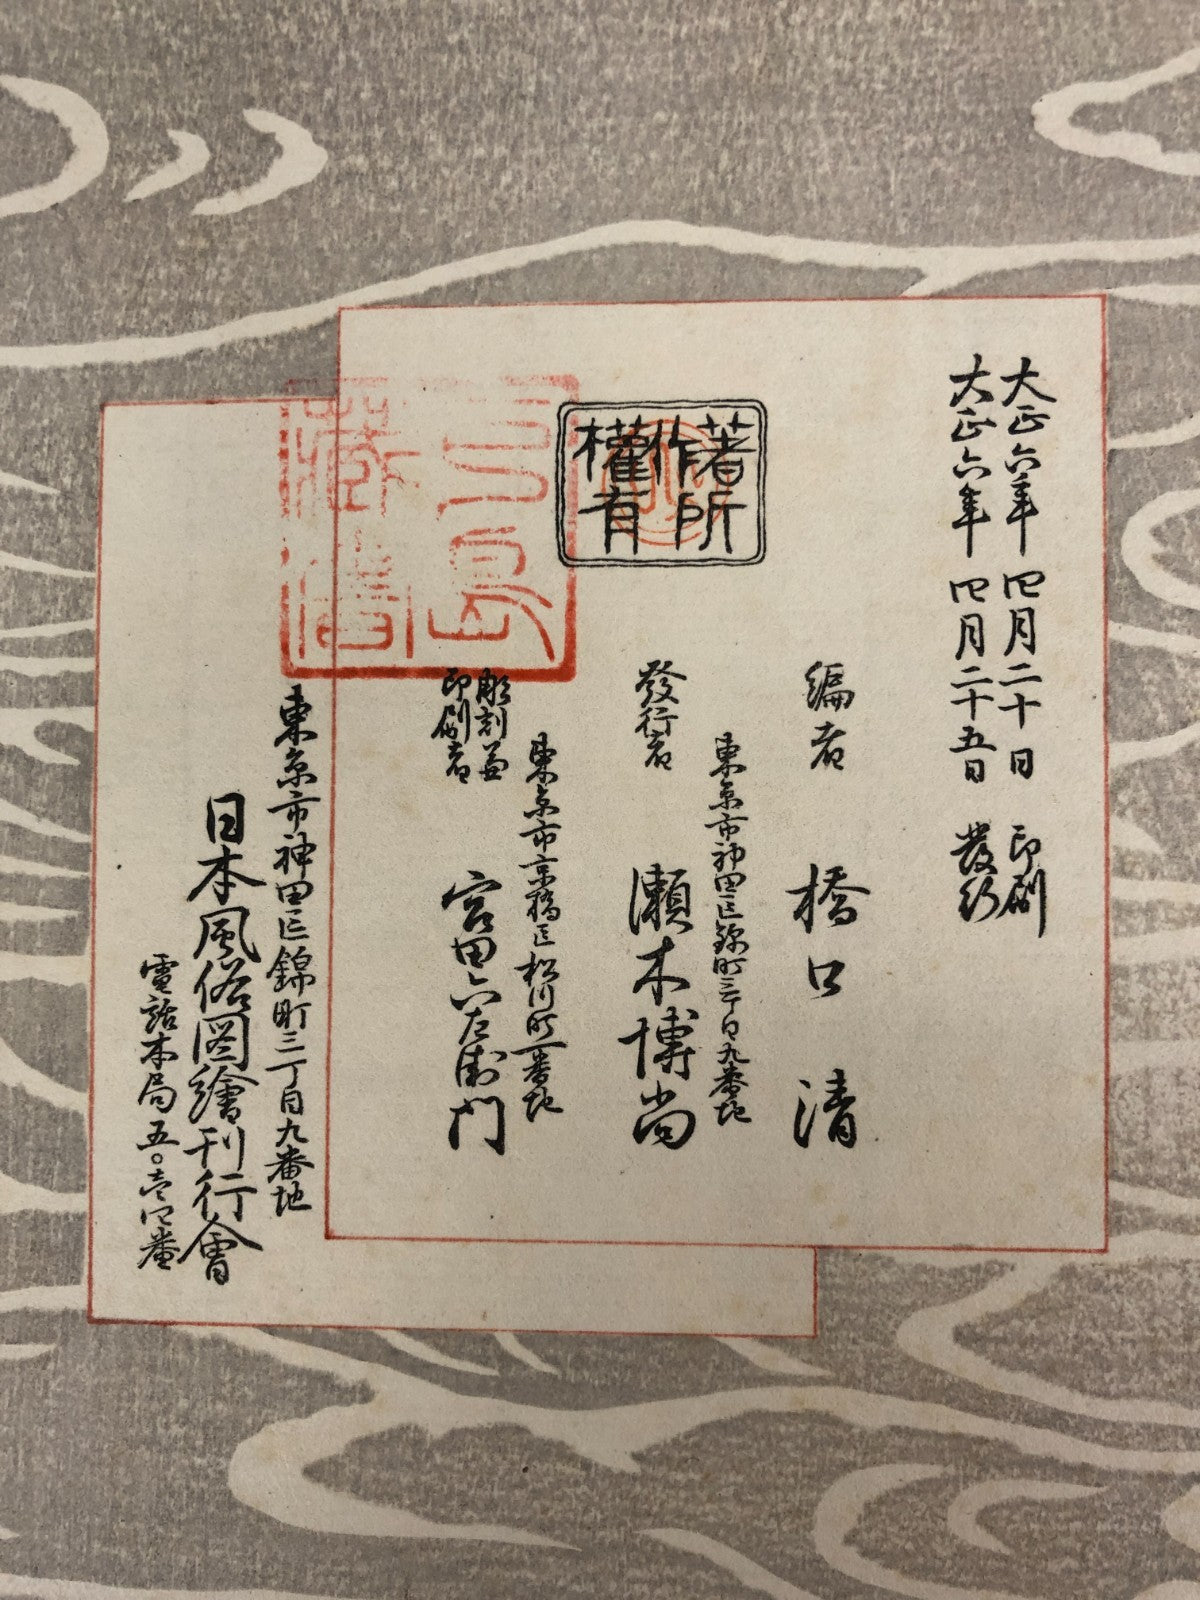 大正六年四月二十日印刷
大正六年四月二十五日發行
編者 橋口清
著作權所有
東京市神田区錦町三丁目九番地
發行者 瀬木博尚
東京市京橋区松川町一番地
彫刻兼
印刷者
宮田六左衛門
東京市神田区錦町三丁目九番地
日本風俗圖繪刊行會
電話本局五〇壱四番